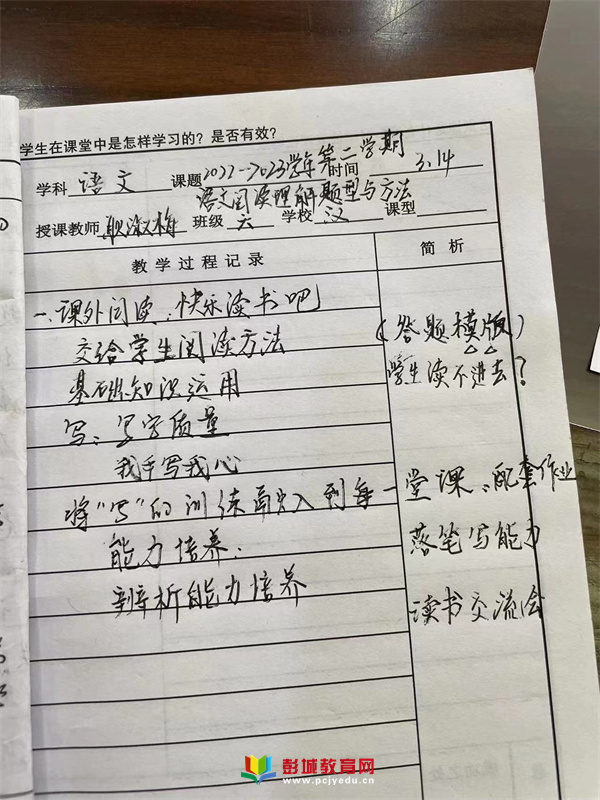 学生在课堂中是怎样学习的？是否有效？
学科 语文 课题 2022-2023学年第二学期 时间 3.14
语文阅读理解题型与方法
授课教师 耿淑梅 班级 六 学校 汉 课型
教学过程记录 简析
一、课外阅读：快乐读书吧
交给学生阅读方法 （答题模版）
基础知识运用 学生读不进去？
写：写字质量
我手写我心
将“写”的训练融入到每一堂课、配套作业
能力培养： 落笔写能力
辨析能力培养 读书交流会
彭城教育网
www.pcjyedu.cn